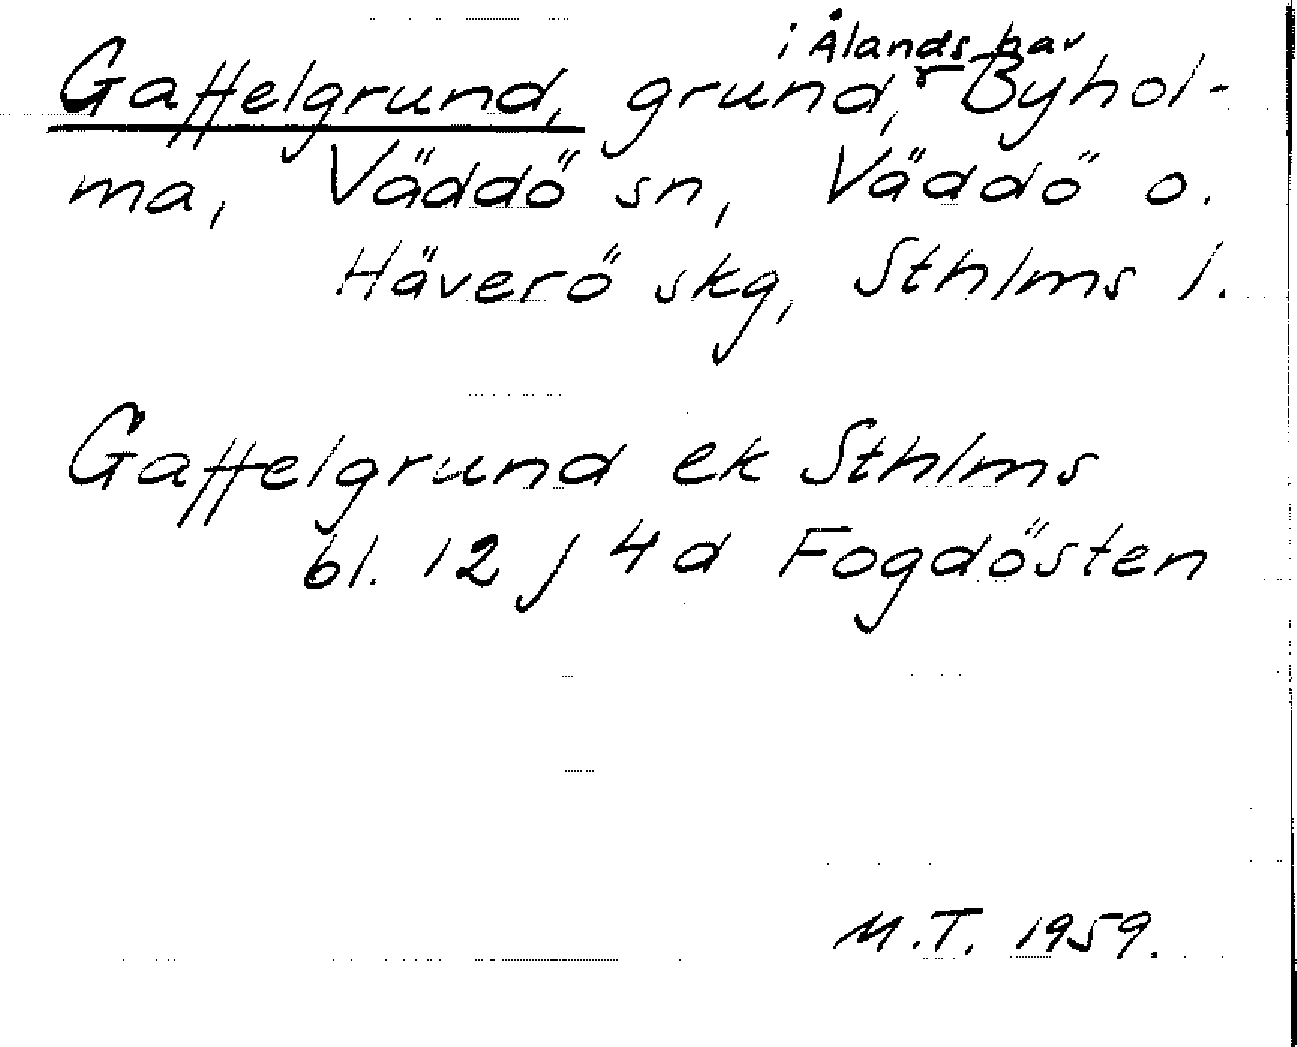 i Ålands hav
Gaffelgrund, grund, Byhol-
ma, Väddö sn, Väddö o.
Häverö skg, Sthlms l.
Gaffelgrund ek Sthlms
bl. 12 j 4 d Fogdösten
M.T. 1959.